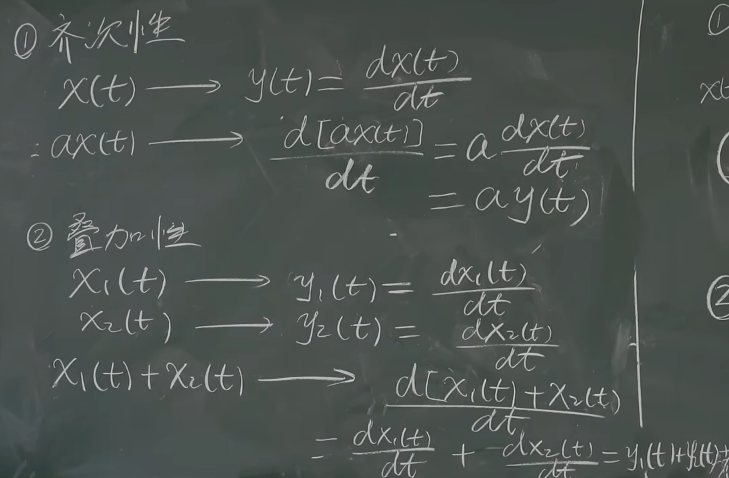 ① 齐次性
x(t) ⟶ y(t) = dx(t)/dt
: ax(t) ⟶ d[ax(t)]/dt = a dx(t)/dt
= ay(t)
② 叠加性
x₁(t) ⟶ y₁(t) = dx₁(t)/dt
x₂(t) ⟶ y₂(t) = dx₂(t)/dt
x₁(t) + x₂(t) ⟶ d[x₁(t) + x₂(t)]/dt
= dx₁(t)/dt + dx₂(t)/dt = y₁(t) + y₂(t)
①
x(t
②